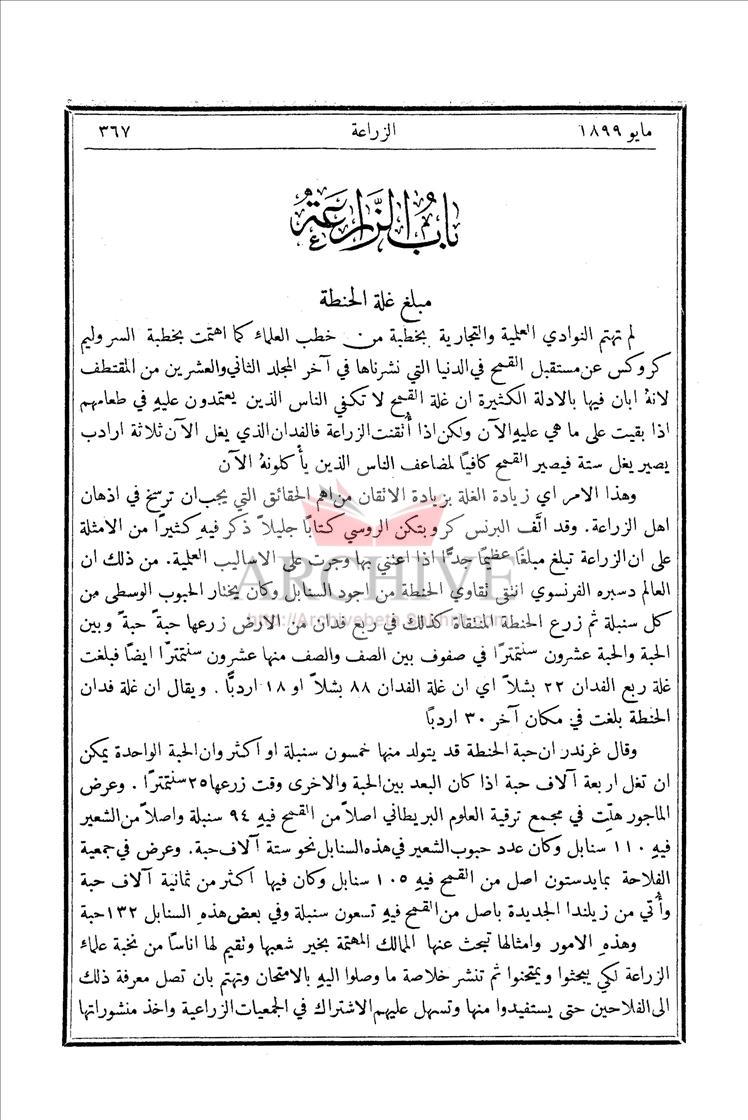 مايو ١٨٩٩ الزراعة ٣٦٧
باب الزراعة
مبلغ غلة الحنطة
لم تهتم النوادي العلمية والتجارية بخطبة من خطب العلماء كما اهتمت بخطبة السر وليم
كروكس عن مستقبل القمح في الدنيا التي نشرناها في آخر المجلد الثاني والعشرين من المقتطف
لانهُ ابان فيها بالادلة الكثيرة ان غلة القمح لا تكفي الناس الذين يعتمدون عليهِ في طعامهم
اذا بقيت على ما هي عليهِ الآن ولكن اذا أُتقنت الزراعة فالفدان الذي يغل الآن ثلاثة ارادب
يصير يغل ستة فيصير القمح كافيًا لمضاعف الناس الذين يأكلونهُ الآن
وهذا الامر اي زيادة الغلة بزيادة الاتقان من اهم الحقائق التي يجب ان ترسخ في اذهان
اهل الزراعة. وقد الَّف البرنس كروبتكن الروسي كتابًا جليلاً ذكر فيهِ كثيرًا من الامثلة
على ان الزراعة تبلغ مبلغًا عظيمًا جدًّا اذا اعتني بها وجرت على الاساليب العلمية. من ذلك ان
العالم دسبره الفرنسوي انتقى ثقاوي الحنطة من اجود السنابل وكان يختار الحبوب الوسطى من
كل سنبلة ثم زرع الحنطة المنتقاة كذلك في ربع فدان من الارض زرعها حبةً حبةً وبين
الحبة والحبة عشرون سنتمترًا في صفوف بين الصف والصف منها عشرون سنتمترًا ايضًا فبلغت
غلة ربع الفدان ٢٢ بشلاً اي ان غلة الفدان ٨٨ بشلاً او ١٨ اردبًّا . ويقال ان غلة فدان
الحنطة بلغت في مكان آخر ٣٠ اردبًا
وقال غرندر ان حبة الحنطة قد يتولد منها خمسون سنبلة او اكثر وان الحبة الواحدة يمكن
ان تغل اربعة آلاف حبة اذا كان البعد بين الحبة والاخرى وقت زرعها ٢٥ سنتمترًا . وعرض
الماجور هلِّت في مجمع ترقية العلوم البريطاني اصلاً من القمح فيهِ ٩٤ سنبلة واصلاً من الشعير
فيهِ ١١٠ سنابل وكان عدد حبوب الشعير في هذه السنابل نحو ستة آلاف حبة . وعرض في جمعية
الفلاحة بمايدستون اصل من القمح فيهِ ١٠٥ سنابل وكان فيها اكثر من ثمانية آلاف حبة
وأُتي من زيلندا الجديدة باصل من القمح فيهِ تسعون سنبلة وفي بعض هذهِ السنابل ١٣٢ حبة
وهذهِ الامور وامثالها تبحث عنها الممالك المهتمة بخير شعبها وتقيم لها اناسًا من نخبة علماء
الزراعة لكي يبحثوا ويمتحنوا ثم تنشر خلاصة ما وصلوا اليهِ بالامتحان وتهتم بان تصل معرفة ذلك
الى الفلاحين حتى يستفيدوا منها وتسهل عليهم الاشتراك في الجمعيات الزراعية واخذ منشوراتها
ARCHIVE